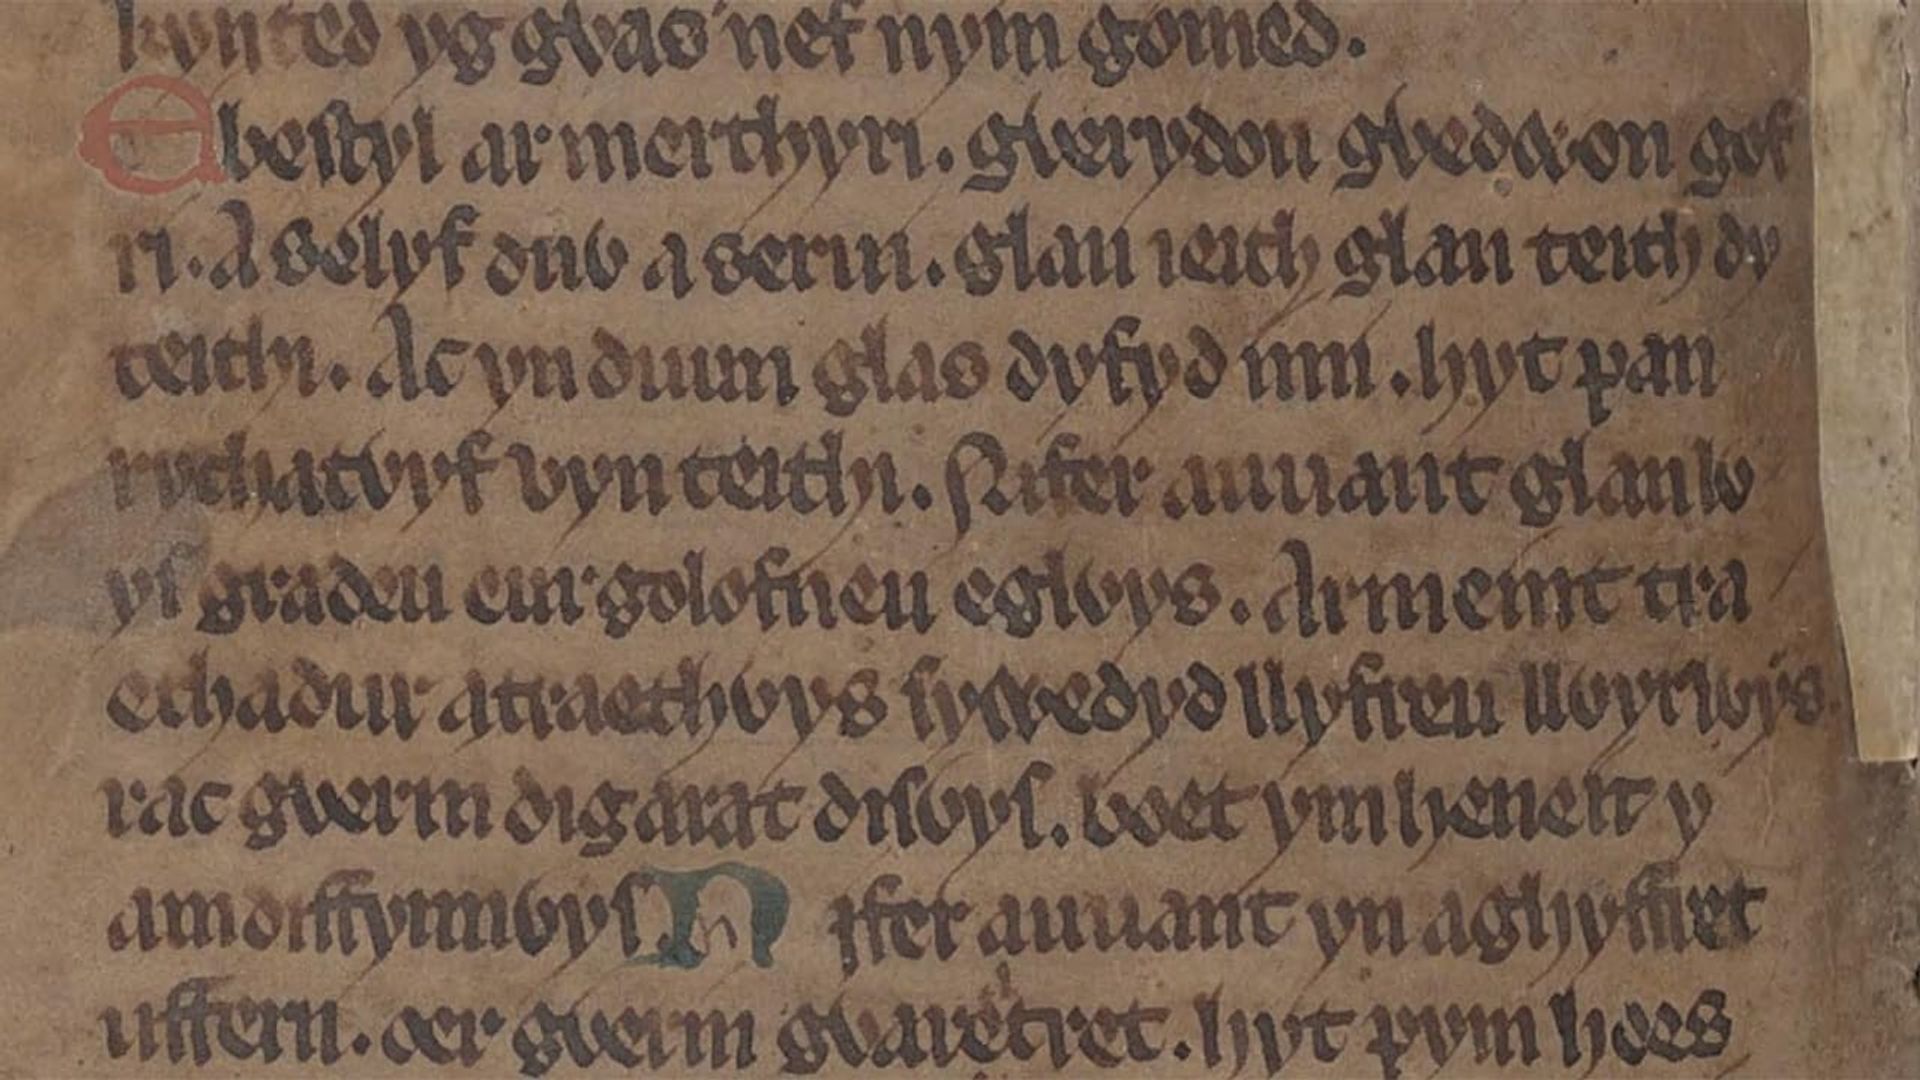 kynted yg gỽas nef nym gomed.
Ebestyl ar merthyri. gỽerydon gỽedỽon gof
ri. A selyf duỽ a serui. glan ieith glan teith dy
teithi. Ac yn duun glas dyfyd imi. hyt pan
rychatỽyf vyn teithi. Nifer auuant glanlỽ
yſ gradeu eur golofneu eglỽys. Ar meint tra
echadur atraethỽys ſywedyd llyfreu llỽyrlỽys.
rac gỽerin digarat diſỽyſ. boet ym heneit y
amdiffynnỽyſ. Nifer auuant yn aghyffret
uffern. oer gỽerin gỽaretret. hyt pym hoes